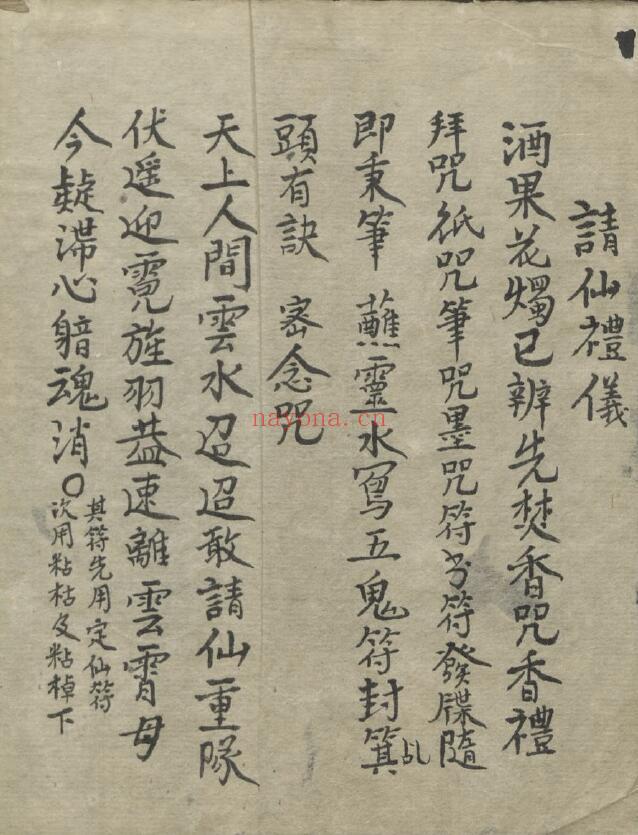 請仙禮儀
酒果花燭已辨先焚香咒香禮
拜咒紙咒筆咒墨咒符書符發牒隨
即秉筆 蘸靈水寫五鬼符封箕乩
頭有訣 密念咒
天上人間雲水迢迢敢請仙重隊
伏遥迎霓旌羽蓋速離雲霄毋
今凝滯心 魂消○
其符先用定仙符
次用粘枯及粘棹下
nayona.cn